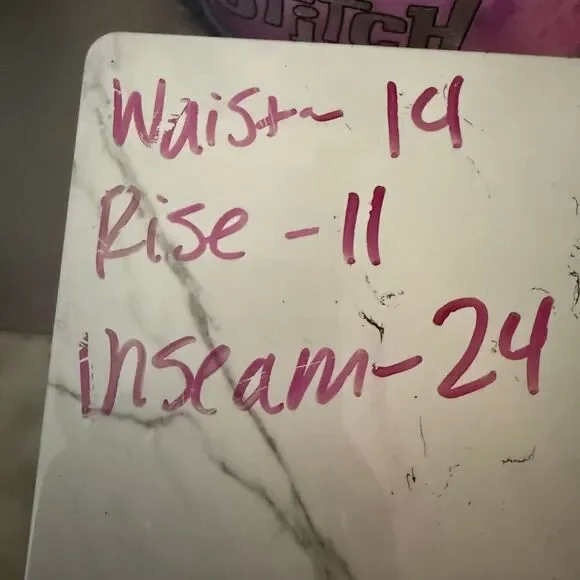 STITCH
Waist~ 19
Rise - 11
inseam - 24